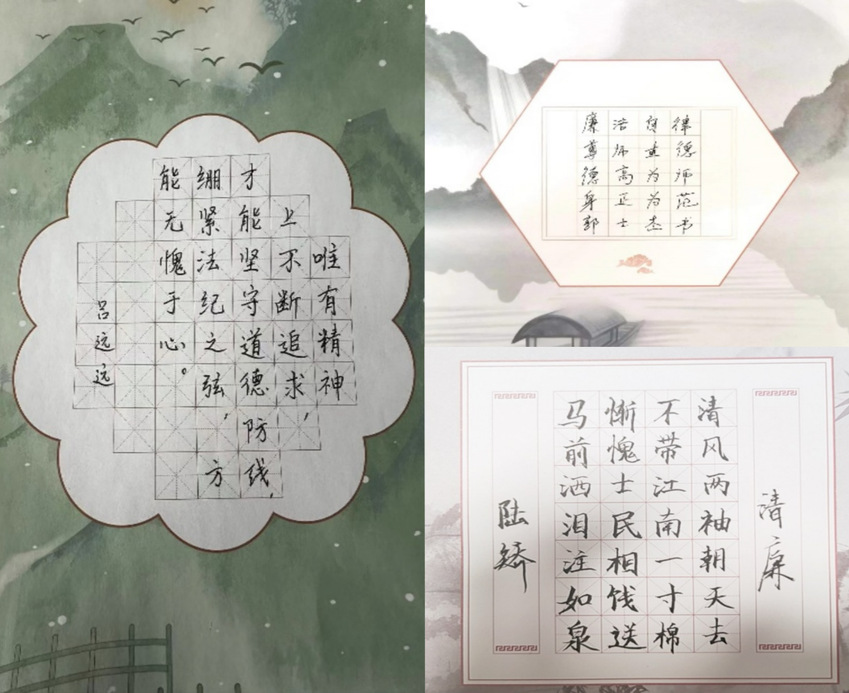 唯有精神
上不断追求，
才能坚守道德防线，
绷紧法纪之弦，方
能无愧于心。
吕远远
廉洁自律
尊师重德
德高为师
身正为范
郭士杰书
清廉
清风两袖朝天去
不带江南一寸棉
惭愧士民相饯送
马前洒泪注如泉
陆矫